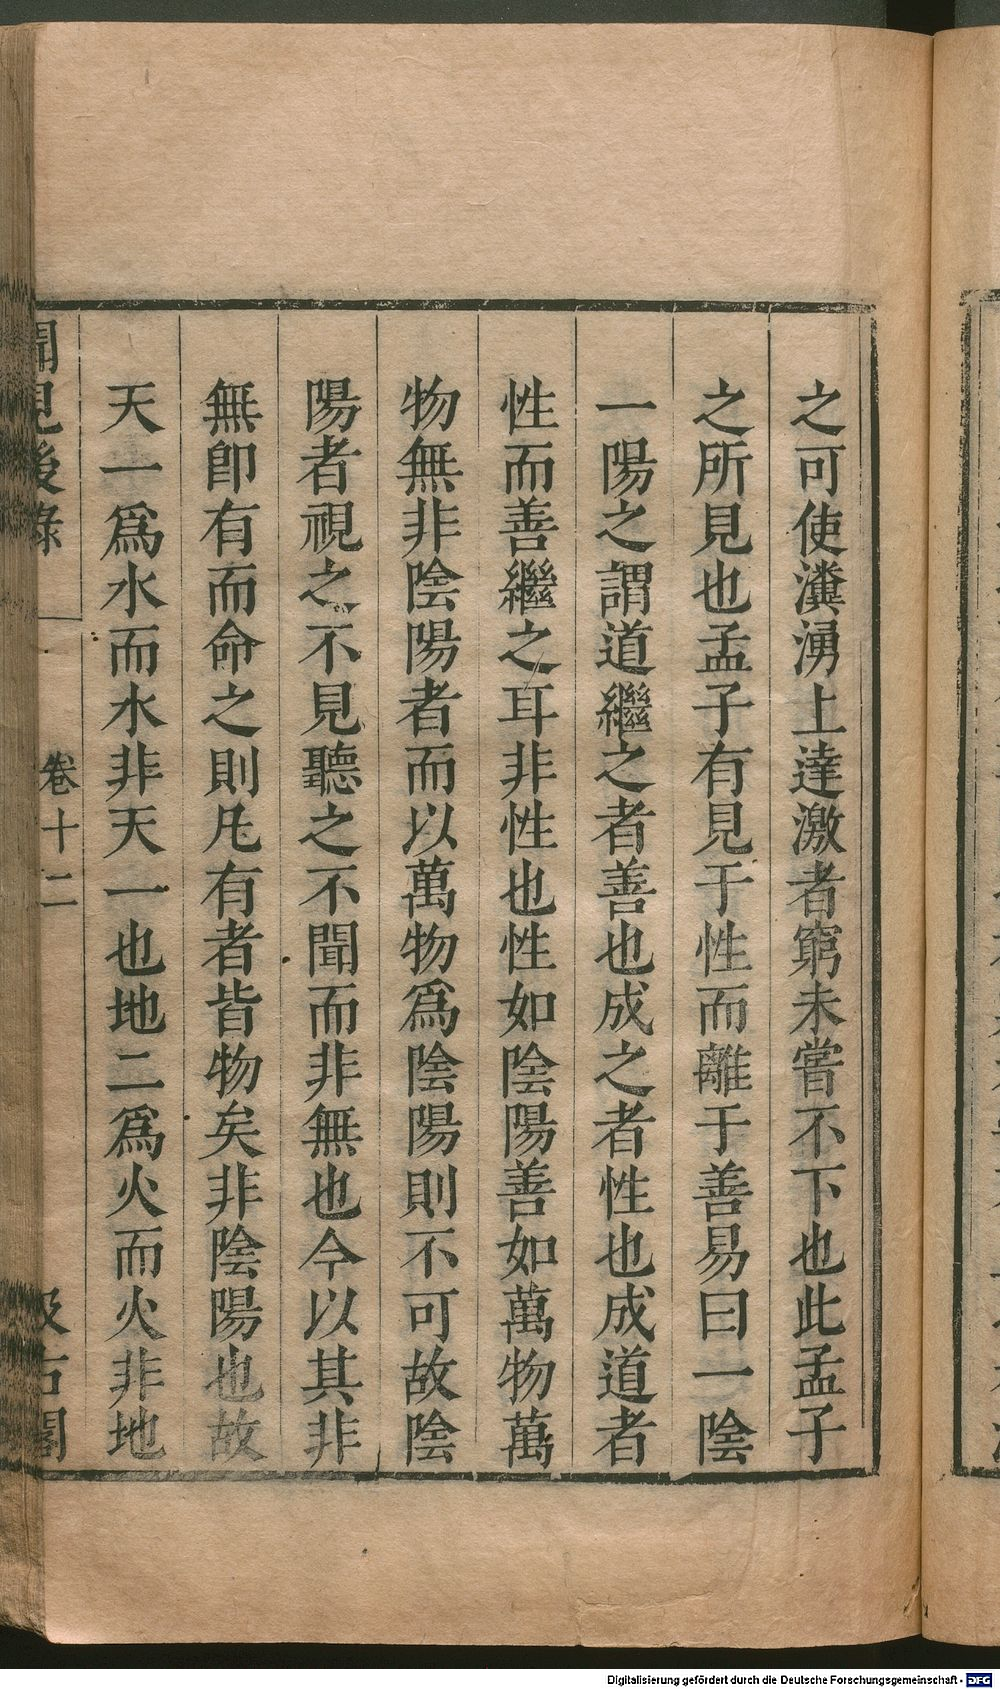 之可使瀵湧上達激者窮未嘗不下也此孟子
之所見也孟子有見于性而離于善易曰一陰
一陽之謂道繼之者善也成之者性也成道者
性而善繼之耳非性也性如陰陽善如萬物萬
物無非陰陽者而以萬物爲陰陽則不可故陰
陽者視之不見聽之不聞而非無也今以其非
無卽有而命之則凡有者皆物矣非陰陽也故
天一爲水而水非天一也地二爲火而火非地
聞見後錄 卷十二 汲古閣
Digitalisierung gefördert durch die Deutsche Forschungsgemeinschaft - DFG